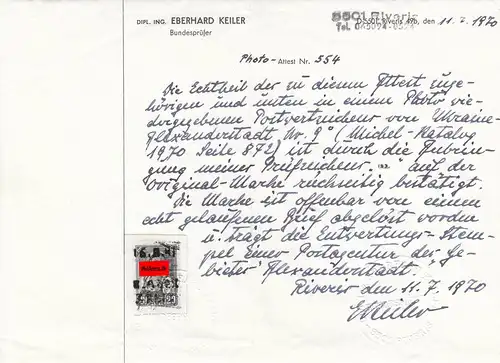 DIPL. ING. EBERHARD KEILER
Bundesprüfer
5501 Riveris
Tel. 065094-6524
D-5501 Riveris 49b, den 11. 7. 1970
Photo-Attest Nr. 554
Die Echtheit der zu diesem Attest zuge-
hörigen und unten in einem Photo wie-
dergegebenen Postwertzeichens von Ukraine-
Alexanderstadt Nr. 9 (Michel-Katalog
1970 Seite 872) ist durch die Anbrin-
gung meines Prüfzeichens auf der
Original-Marke rückseitig bestätigt.
Die Marke ist offenbar von einem
echt gelaufenen Brief abgelöst worden
u. trägt die Entwertungs-Stem-
pel einer Postagentur des Ge-
bietes Alexanderstadt.
Riveris den 11. 7. 1970
EKeiler